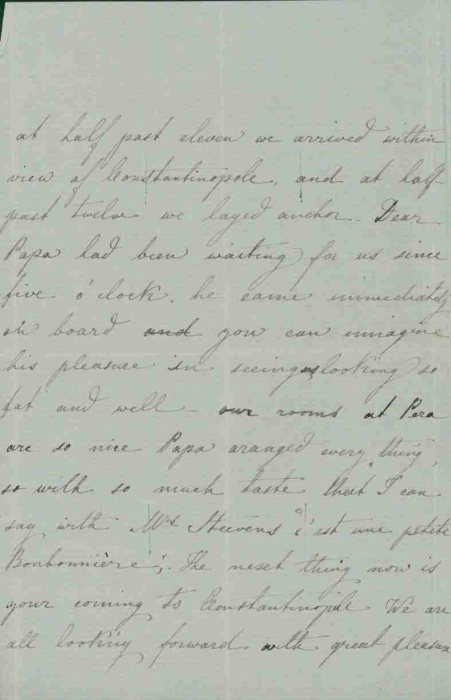 at half past eleven we arrived within
view of Constantinople, and at half
past twelve we layed anchor - Dear
Papa had been waiting for us since
five o'clock. he came immediately
on board and you can immagine
his pleasure in seeing us looking so
fat and well - our rooms at Pera
are so nice Papa aranged every thing,
so with so much taste that I can
say with Mrs Steevens "c'est une petite
Bonbonnière". The next thing now is
your coming to Constantinople We are
all looking forward with great pleasure